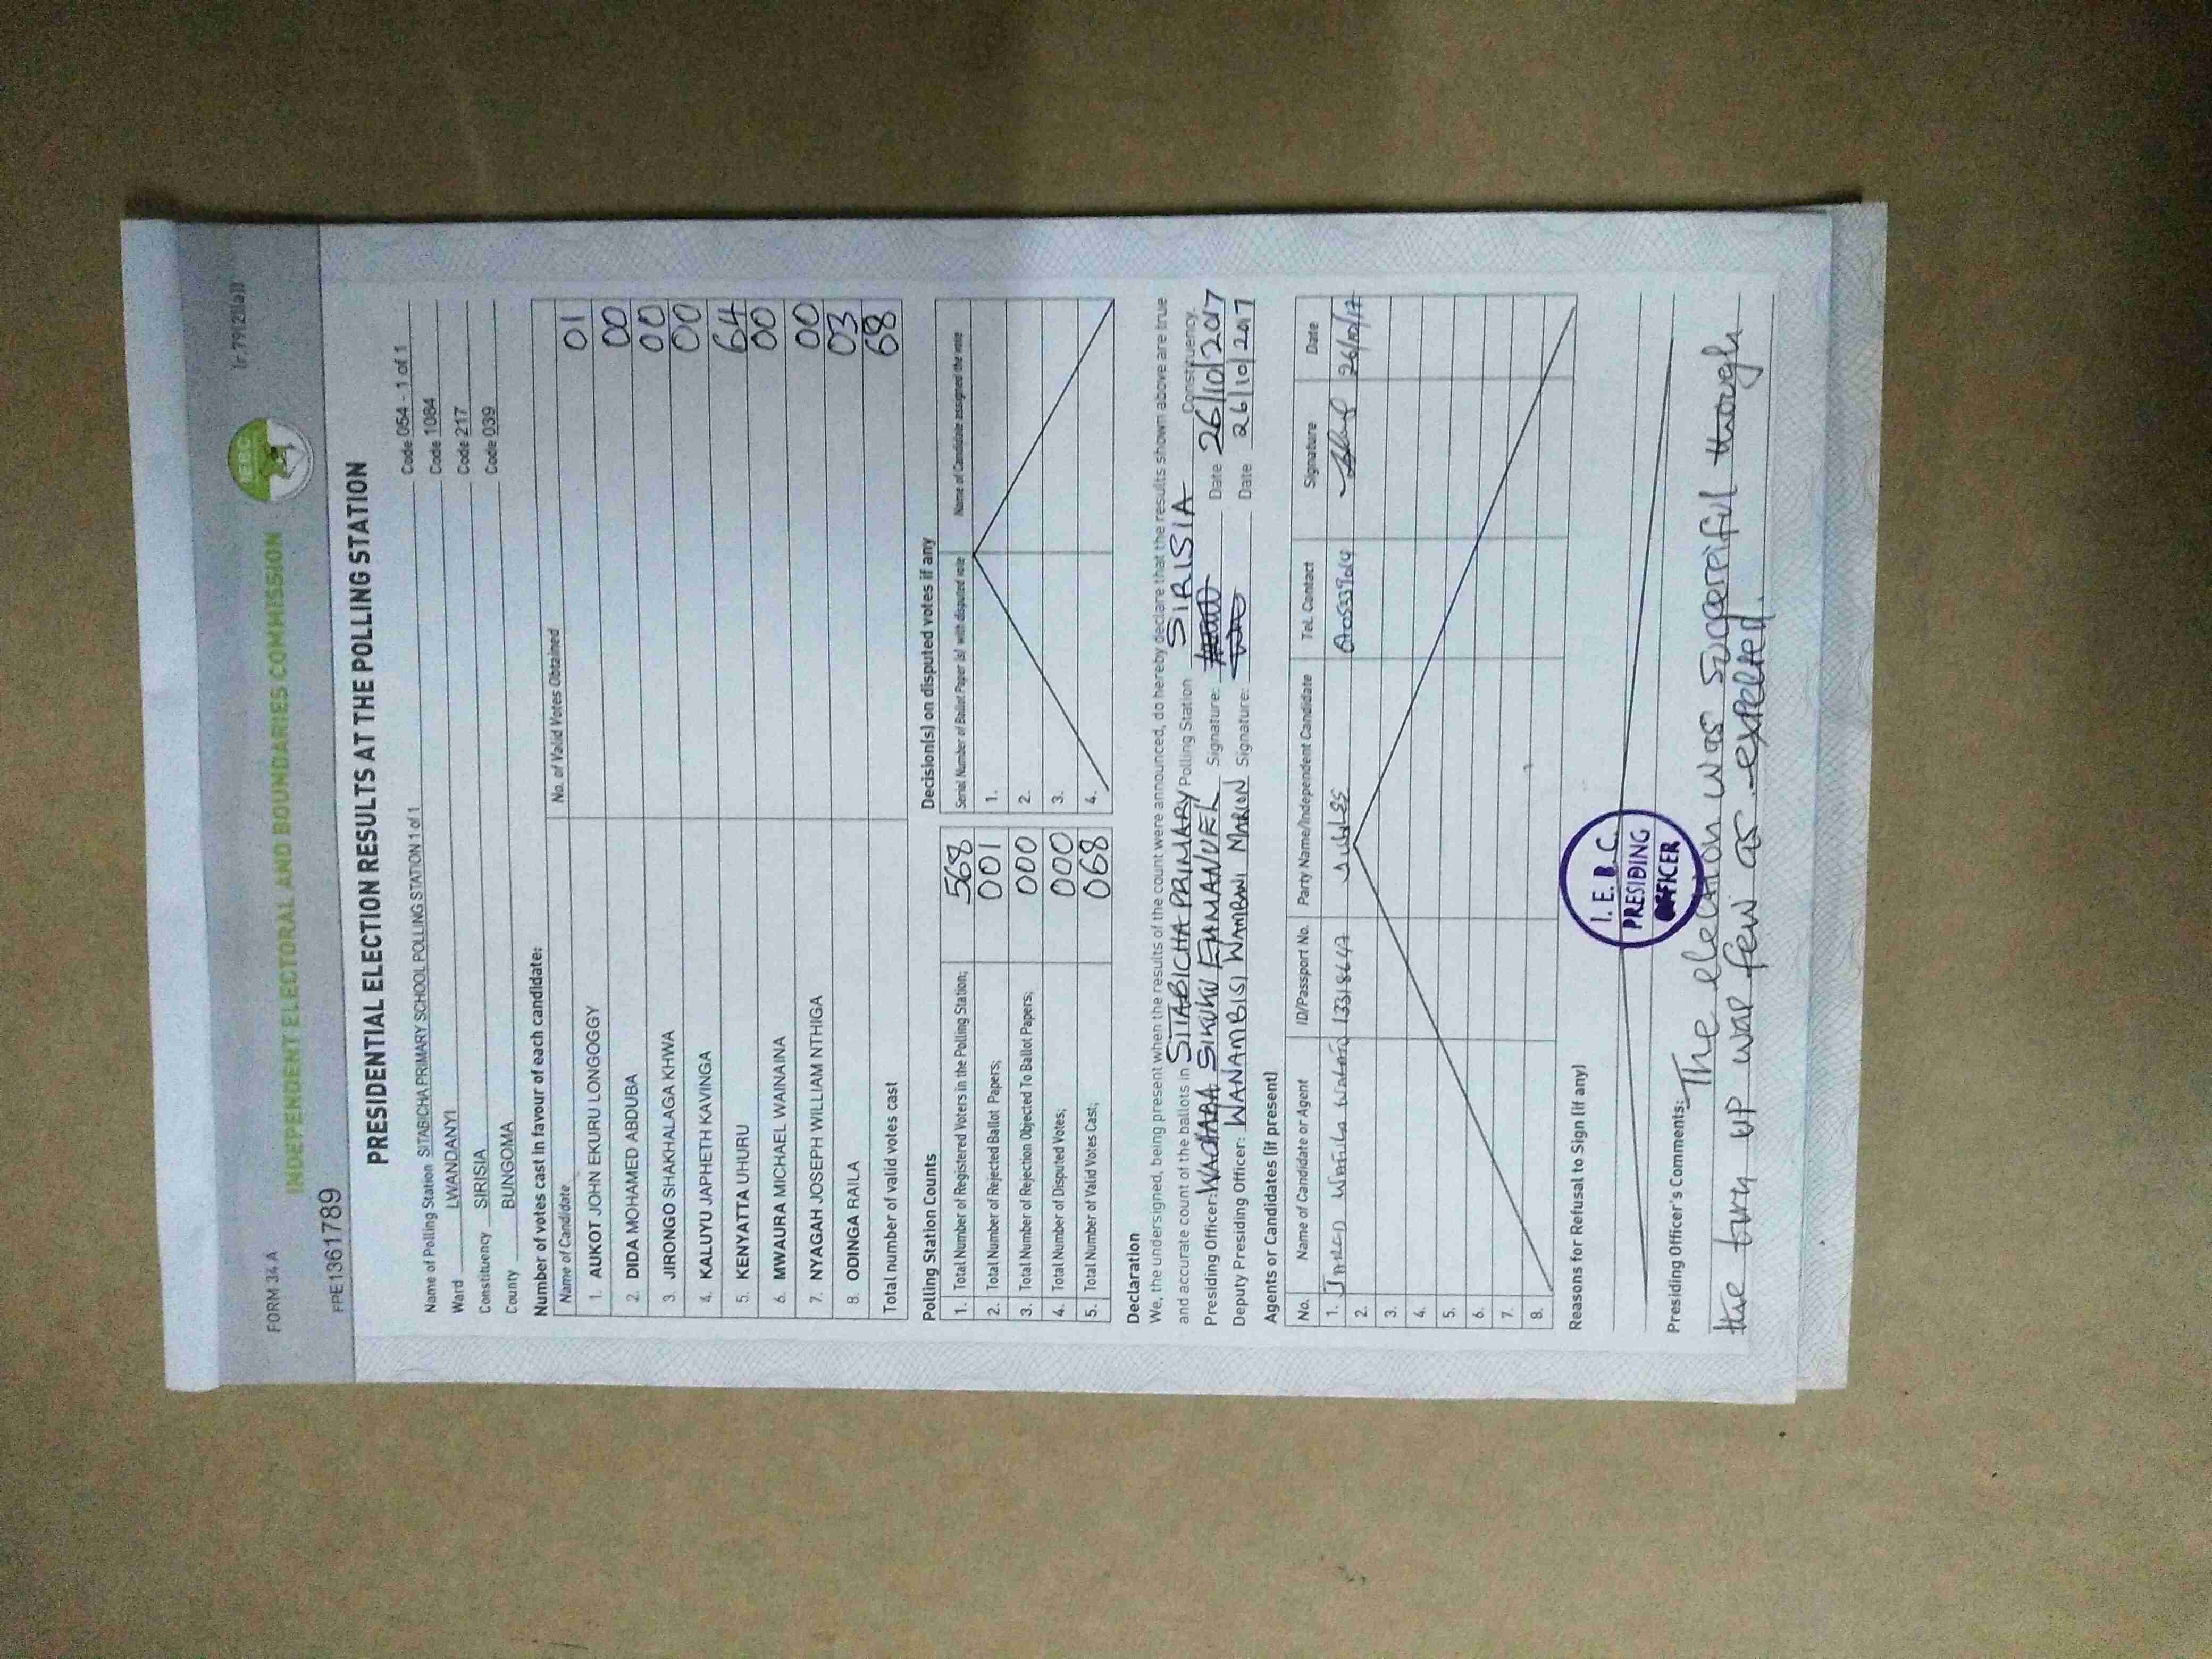 FORM 34 A
Ir 7912(1a)
I.E.B.C
INDEPENDENT ELECTORAL AND BOUNDARIES COMMISSION
FPE1361789
PRESIDENTIAL ELECTION RESULTS AT THE POLLING STATION
Name of Polling Station SITABICHA PRIMARY SCHOOL POLLING STATION 1 of 1 Code 054 - 1 of 1
Ward LWANDANYI Code 1084
Constituency SIRISIA Code 217
County BUNGOMA Code 039
Number of votes cast in favour of each candidate:
Name of Candidate No. of Valid Votes Obtained
1. AUKOT JOHN EKURU LONGOGGY 01
2. DIDA MOHAMED ABDUBA 00
3. JIRONGO SHAKHALAGA KHWA 00
4. KALUYU JAPHETH KAVINGA 00
5. KENYATTA UHURU 64
6. MWAURA MICHAEL WAINAINA 00
7. NYAGAH JOSEPH WILLIAM NTHIGA 00
8. ODINGA RAILA 03
Total number of valid votes cast 68
Polling Station Counts
1. Total Number of Registered Voters in the Polling Station; 568
2. Total Number of Rejected Ballot Papers; 001
3. Total Number of Rejection Objected To Ballot Papers; 000
4. Total Number of Disputed Votes; 000
5. Total Number of Valid Votes Cast; 068
Decision(s) on disputed votes if any
Serial Number of Ballot Paper (s) with disputed vote Name of Candidate assigned the vote
1.
2.
3.
4.
Declaration
We, the undersigned, being present when the results of the count were announced, do hereby declare that the results shown above are true
and accurate count of the ballots in SITABICHA PRIMARY Polling Station SIRISIA Constituency.
Presiding Officer: SIKUKU EMMANUEL Signature: Date 26/10/2017
Deputy Presiding Officer: WANAMBISI WAMBANI MARION Signature: Date 26/10/2017
Agents or Candidates (if present)
No. Name of Candidate or Agent ID/Passport No. Party Name/Independent Candidate Tel. Contact Signature Date
1. JARED Wafula 26/10/17
2.
3.
4.
5.
6.
7.
8.
Reasons for Refusal to Sign (if any)
I. E. B. C.
PRESIDING
OFFICER
Presiding Officer's Comments: The election was successful though
the turn up was few as expected.